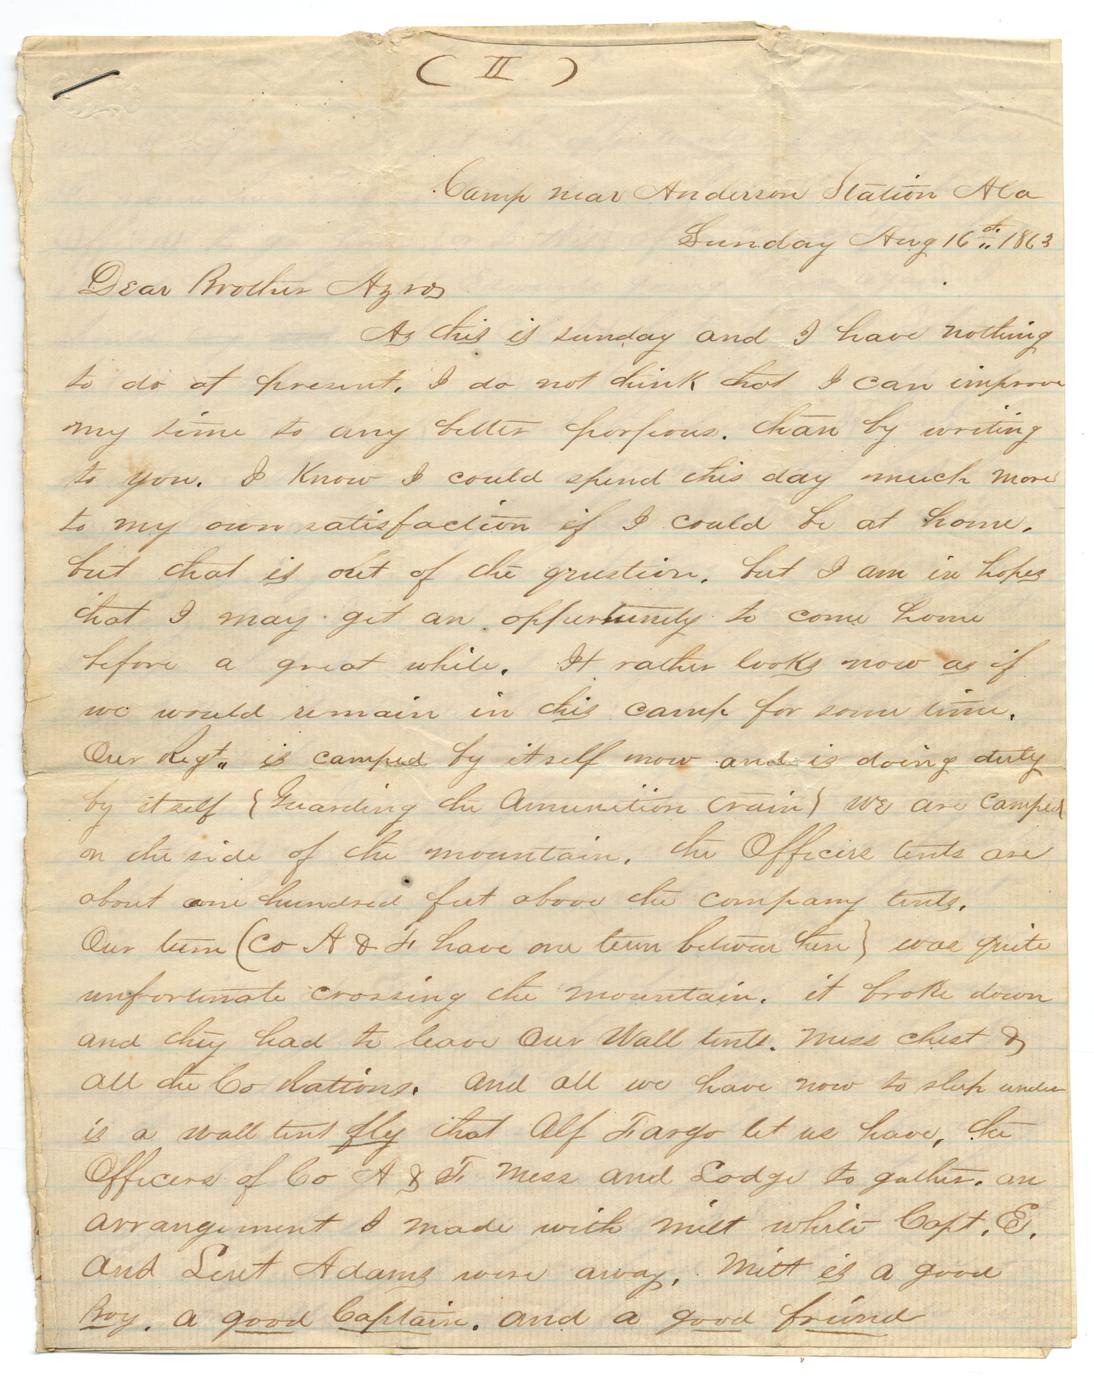 ( II )
Camp near Anderson Station Ala
Sunday Aug 16th 1863
Dear Brother Azro
As this is sunday and I have nothing
to do at present. I do not think that I can improve
my time to any better porpous. than by writing
to you. I Know I could spend this day much more
to my own satisfaction if I could be at home.
but that is out of the question. but I am in hopes
that I may get an oppertunity to come home
before a great while. It rather looks now as if
we would remain in this camp for some time.
Our Regt. is camped by itself now and is doing duty
by itself (Guarding the Amunition train) we are camped
on the side of the mountain. the Officers tents are
about one hundred feet above the company tents.
Our team (Co A & F have one team between them) was quite
unfortunate crossing the mountain. it broke down
and they had to leave Our Wall tents. Mess chest &
all the Co Rations. And all we have now to sleep under
is a wall tent fly that Alf Fargo let us have, the
Officers of Co A & F Mess and Lodge to gather. an
arrangement I made with milt while Capt. E.
And Leut Adams were away. Milt is a good
Boy. a good Captain. and a good friend